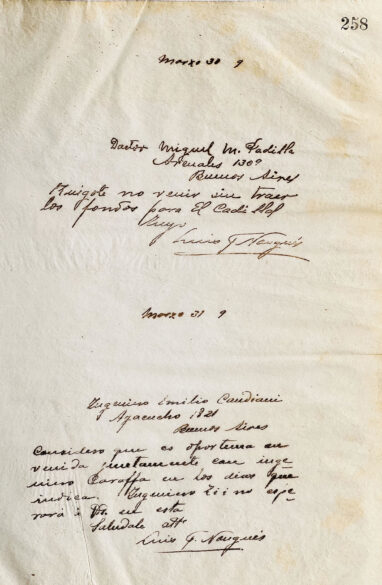 258
Marzo 30 9
Doctor Miguel M. Padilla
Arenales 1309
Buenos Aires
no venir sin traer
los fondos para El Cadillal
Suyo
Luis F. Nougués
Marzo 31 9
Ingeniero Emilio Candiani
Ayacucho 1821
Buenos Aires
Considero que es oportuna su
venida juntamente con inge-
niero Caraffa en los dias que
indica. Ingeniero no espe-
rará á Vd. en esta
Salúdale att°
Luis F. Nougués